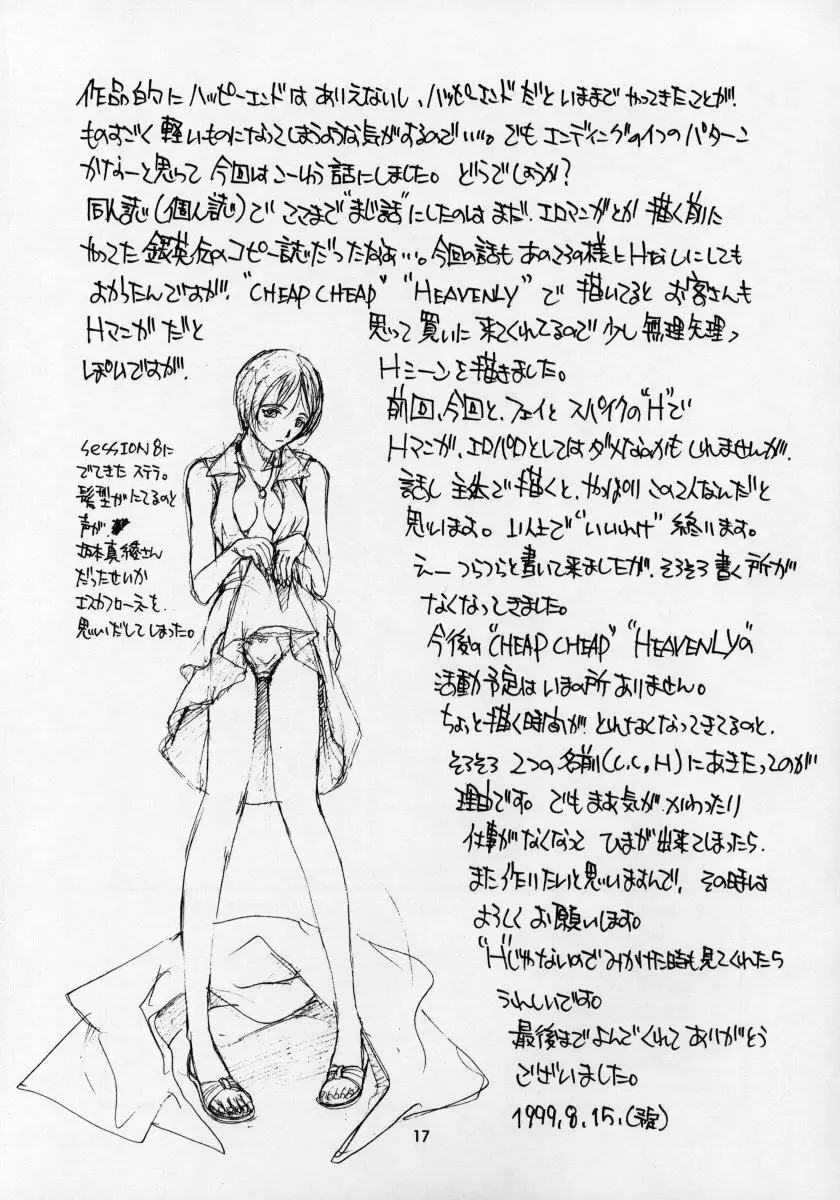 作品的にハッピーエンドはありえないし、ハッピーエンドだといままでやってきたことが、
ものすごく軽いものになってしまうような気がするので…。でもエンディングの1つのパターン
かなぁーと思って今回はこーいう話にしました。どうでしょうか?
同人誌(個人誌)でここまで“まじ話”にしたのはまだ、エロマンガとか描く前に
やってた銀英伝のコピー誌だったなぁ…。今回の話もあのころの様にHなしにしても
よかったんですが、“CHEAP CHEAP” “HEAVENLY”で描いてると お客さんも
Hマンガだと思って買いに来てくれてるので少し無理矢理っ
ぽいですがHシーンを描きました。
前回、今回と、フェイとスパイクの“H”で
Hマンガ、エロパロとしてはダメなのかもしれませんが、
話し主体で描くと、やっぱりこの2人なんだと
思います。以上で“いいわけ”終ります。
えーつらつらと書いて来ましたが、そろそろ書く所が
なくなってきました。
今後の“CHEAP CHEAP” “HEAVENLY”の
活動予定はいまの所ありません。
ちょっと描く時間が、とれなくなってきてるのと、
そろそろ2つの名前(C.C,H)にあきたってのが
理由です。でもまあ気が、かわったり
仕事がなくなって ひまが出来てしまったら、
また作りたいと思いますんで、その時は
よろしくお願いします。
“H”じゃないのでみかけた時も見てくれたら
うれしいです。
最後までよんでくれてありがとう
ございました。
1999.8.15.
SESSION 8に
でてきた ステラ。
髪型がにてるのと
声が、
坂本真綾さん
だったせいか
エスカフローネを、
思いだしてしまった。
17